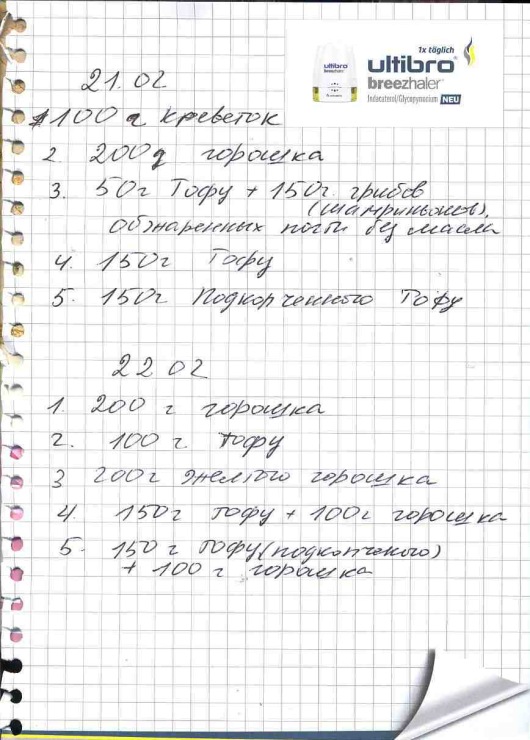 1x täglich
ultibro®
breezhaler®
Indacaterol/Glycopyrronium NEU
ultibro
breezhaler
21.02
1 100 г креветок
2. 200g горошка
3. 50г Тофу + 150г. грибов
(шампиньонов),
обжаренных почти без масла
4. 150г Тофу
5. 150г Подкопченного Тофу
22 02
1. 200 г горошка
2. 100 г. Тофу
3 200г желтого горошка
4. 150г Тофу + 100г горошка
5. 150 г Тофу (подкопченого)
+ 100 г горошка